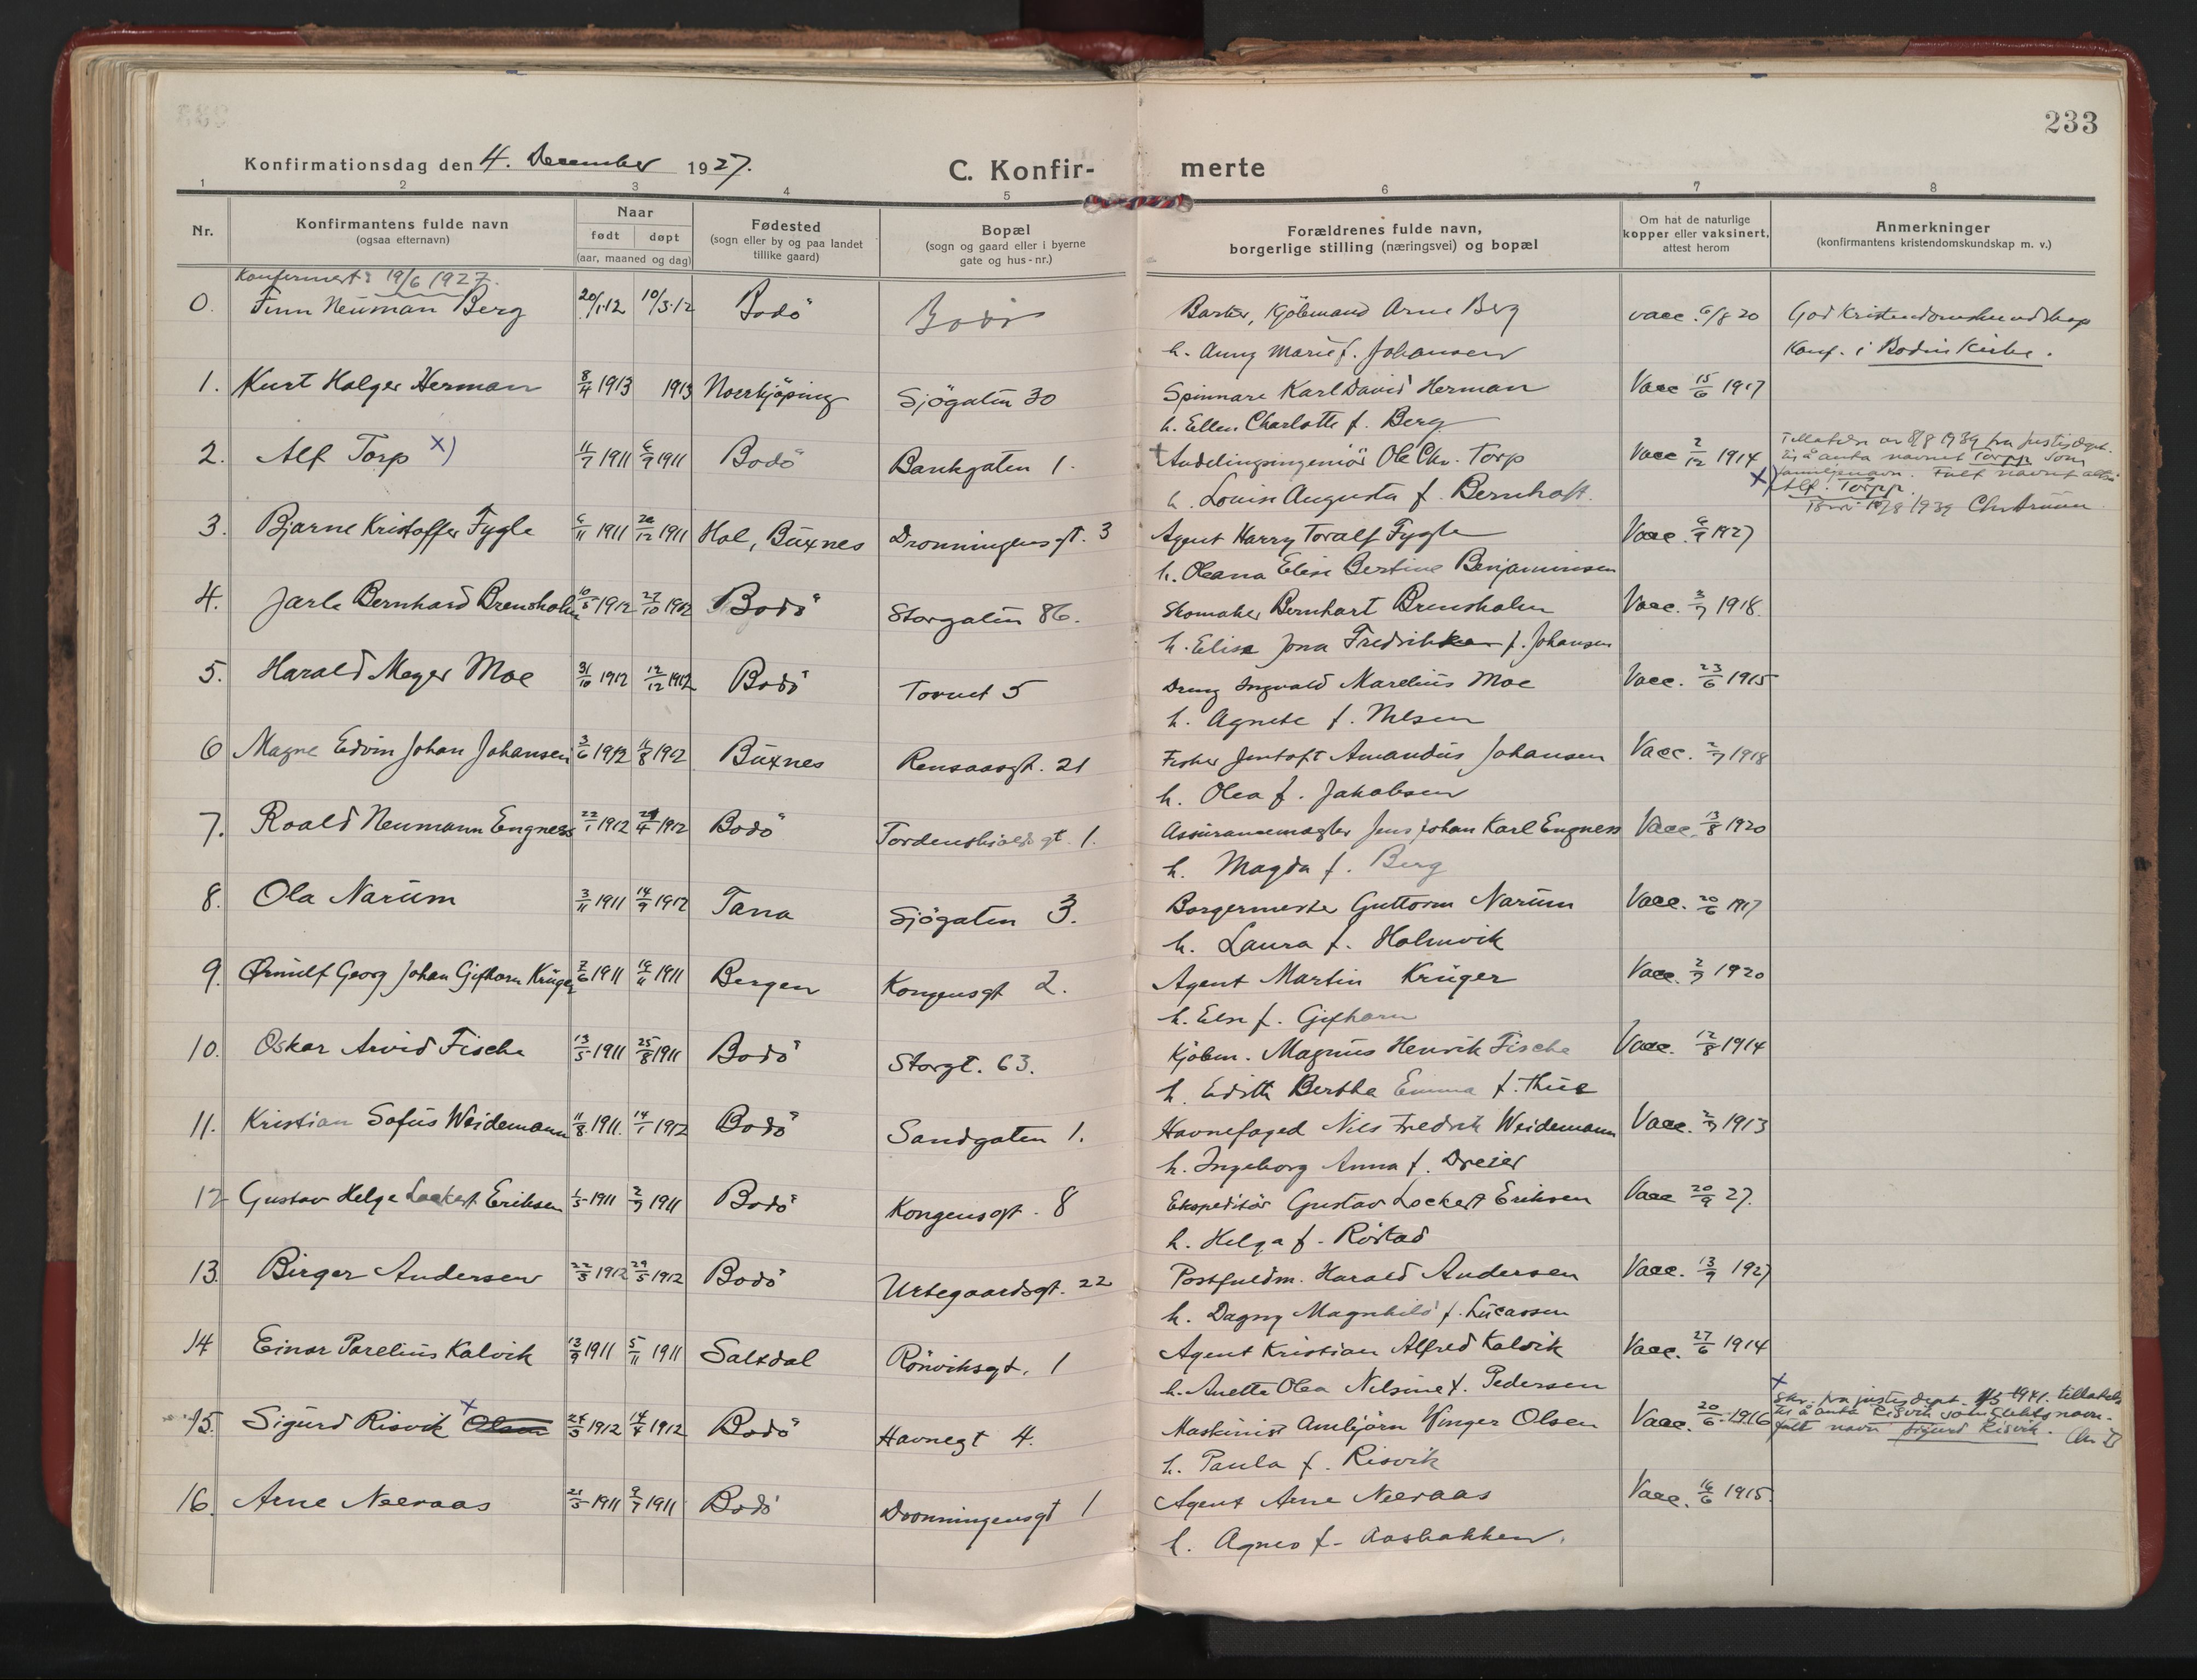 233
Konfirmationsdag den 4. December 1927.
C. Konfir- merte
1 2 3 4 5 6 7 8
Nr.
Konfirmantens fulde navn
(ogsaa efternavn)
Naar
født døpt
(aar, maaned og dag)
Fødested
(sogn eller by og paa landet
tillike gaard)
Bopæl
(sogn og gaard eller i byerne
gate og hus-nr.)
Forældrenes fulde navn,
borgerlige stilling (næringsvei) og bopæl
Om hat de naturlige
kopper eller vaksinert,
attest herom
Anmerkninger
(konfirmantens kristendomskundskap m. v.)
Konfirmert: 19/6 1927.
0. Finn Neuman Berg 20/1.12 10/3.12 Bodö Bodö Kjöbmand Arne Berg vacc. 6/8 20 God Kristendomskundskap
h. Anny Marie f. Johansen Konf. i Bodin Kirke.
1. Kurt Holger Herman 8/4 1913 1913 Norrkjöping Sjögaten 30 Spinnare Karl David Herman Vacc 15/6 1917
h. Ellen Charlotte f. Berg
2. Alf Torp x) 11/7 1911 6/9 1911 Bodö Bankgaten 1. † Avdelingsingeniör Ole Chr. Torp Vacc 2/12 1914 Tillatelse av 8/8 1939 fra justisdept.
til å anta navnet Torpp som
h. Louise Augusta f. Bernhoft. x) familienavn. Fult navn altså
Alf Torpp.
Bodö 18/8 1939
3. Bjarne Kristoffer Fygle 6/11 1911 20/12 1911 Hol, Buxnes Dronningensgt. 3 Agent Harry Toralf Fygle Vacc. 6/9 1927
h. Oleana Elise Bertine Benjaminsen
4. Jarle Bernhard Brensholm 10/5 1912 27/10 1912 Bodö Storgaten 86. Skomaker Bernhart Brensholm Vacc. 3/7 1918.
h. Elise Jona Fredrikke f. Johansen
5. Harald Meyer Moe 31/10 1912 12/12 1912 Bodö Torvet 5 Ingvald Marelius Moe Vacc. 23/6 1915
h. Agnete f. Nilsen
6 Magne Edvin Johan Johansen 3/6 1912 11/8 1912 Buxnes Rensaasgt. 21 Fisker Jentoft Amandus Johansen Vacc. 2/7 1918
h. Olea f. Jakobsen
7. Roald Neumann Engness 22/1 1912 21/4 1912 Bodö Tordenskioldsgt. 1. Assurancemægler Jens Johan Karl Engness Vacc. 13/8 1920
h. Magda f. Berg
8. Ola Narum 3/11 1911 14/9 1912 Tana Sjögaten 3. Borgermester Guttorm Narum Vacc. 20/6 1917
h. Laura f. Holmvik
9. Ørnulf Georg Johan Gifhorn Krüger 7/6 1911 19/11 1911 Bergen Kongensgt 2. Agent Martin Krüger Vacc. 2/7 1920
h. Else f. Gifhorn
10. Oskar Arvid Fische 13/5 1911 25/8 1911 Bodö Storgt. 63. Kjöbm. Magnus Henrik Fische Vacc. 12/8 1914
h. Edith Berthe Emma f. Hüe
11. Kristian Sofus Weidemann 11/8 1911. 14/1 1912 Bodö Sandgaten 1. Havnefoged Nils Fredrik Weidemann Vacc. 2/7 1913
h. Ingeborg Anna f. Dreier
12 Gustav Helge Lockert Eriksen 1/5 1911 2/7 1911 Bodö Kongensgt. 8 Ekspeditör Gustav Lockert Eriksen Vacc 20/9 27.
h. Helga f. Röstad
13. Birger Andersen 22/3 1912 29/5 1912 Bodö Urtegaardsgt. 22 Postfuldm. Harald Andersen Vacc. 13/9 1927
h. Dagny Magnhild f. Lucassen
14 Einar Parelius Kalvik 13/9 1911 5/11 1911 Saltdal Rönviksgt. 1 Agent Kristian Alfred Kalvik Vacc. 27/6 1914
h. Anette Olea Nilsine f. Pedersen
15. Sigurd Risvik x Olsen 24/3 1912 14/4 1912 Bodö Havnegt 4. Maskinist Arnbjörn Winger Olsen Vacc. 20/6 1916 x Skr. fra justisdept. 1941. tillatelse
til å anta Risvik som slektsnavn.
h. Paula f. Risvik fullt navn Sigurd Risvik.
16. Arne Neeraas 21/5 1911 9/7 1911 Bodö Dronningensgt 1 Agent Arne Neeraas Vacc. 16/6 1915.
h. Agnes f. Aasbakken.